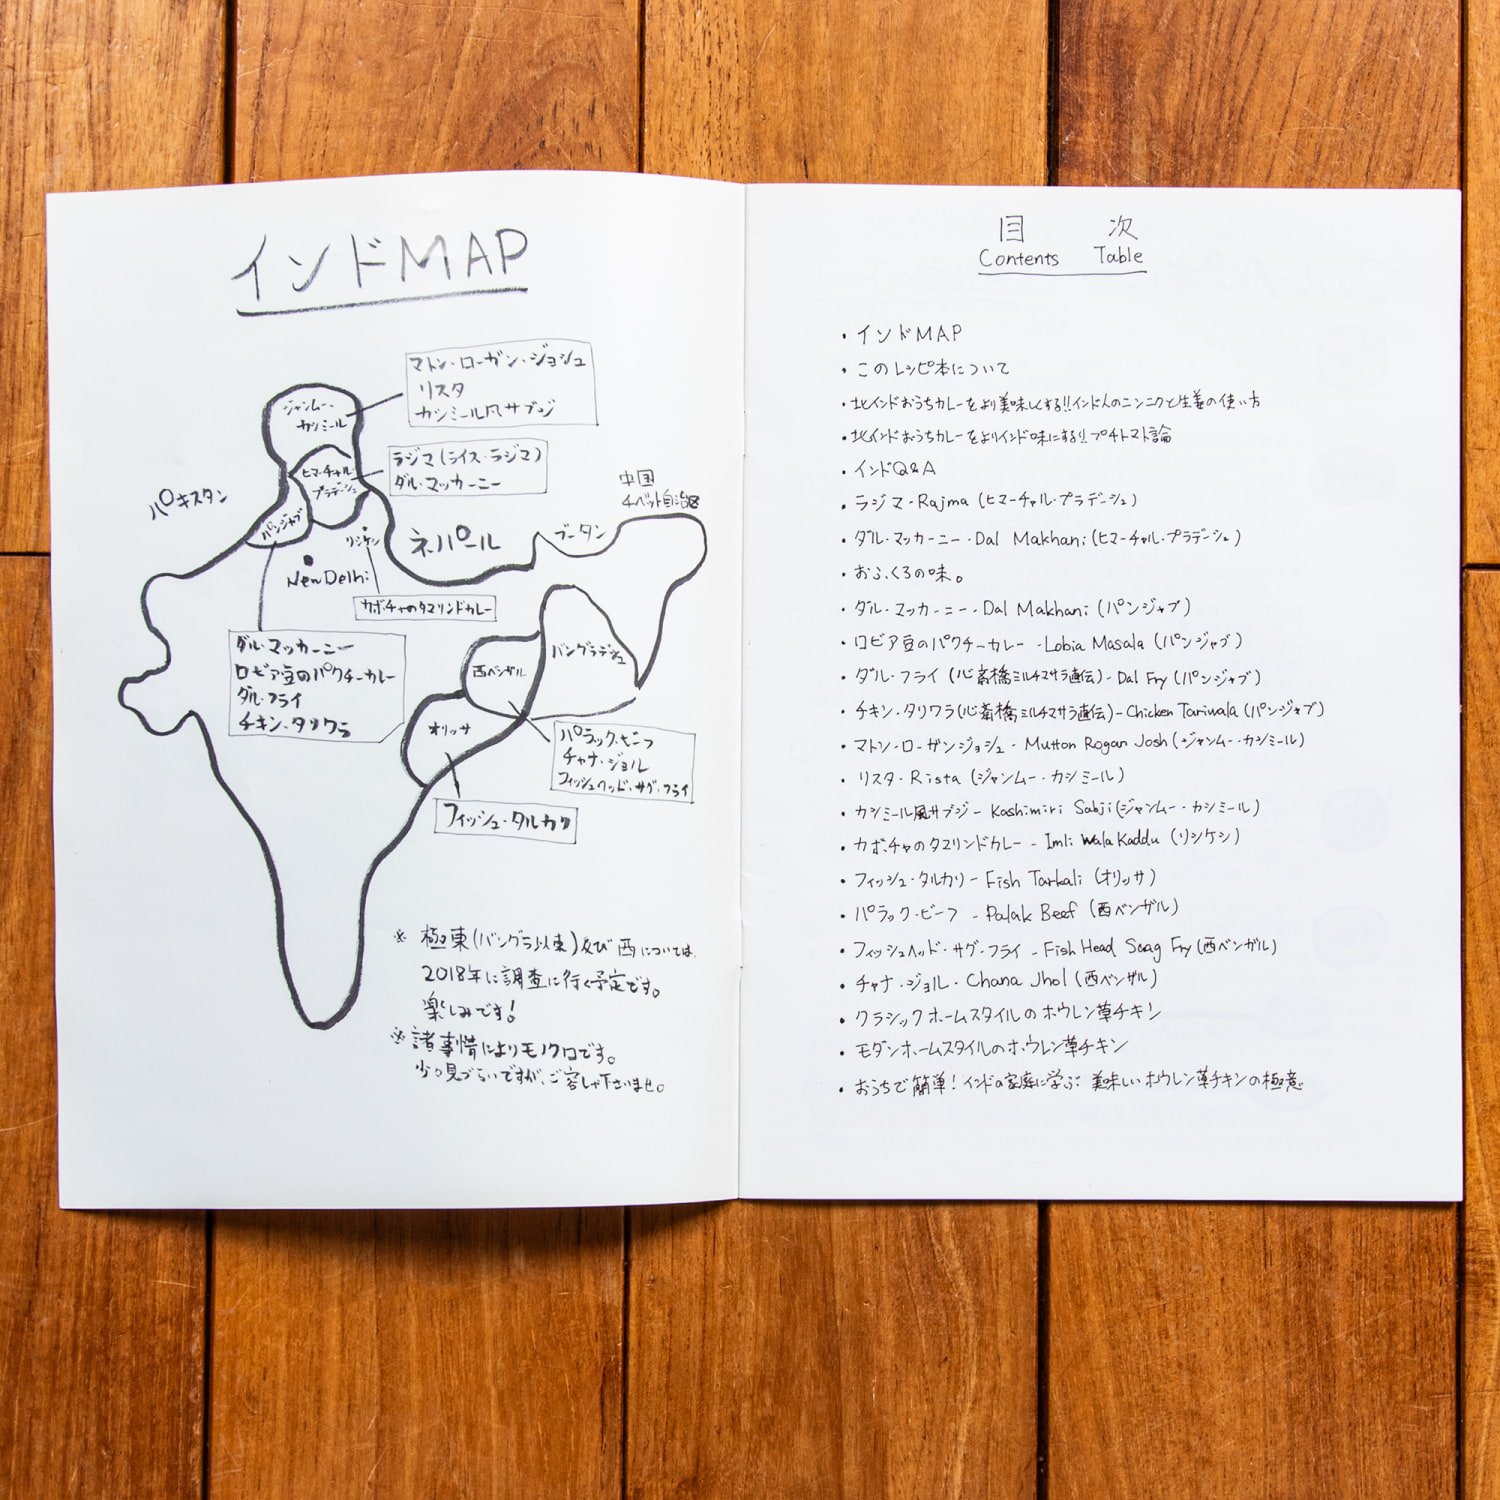 インドMAP
マトン・ローガン・ジョシュ
リスタ
カシミール風サブジ
ジャンムー・
カシミール
ラジマ(ライス・ラジマ)
ダル・マッカーニー
ヒマーチャル・
プラデーシュ
中国
チベット自治区
パキスタン
パンジャブ
リシケシ
ネパール
ブータン
New Delhi
カボチャのタマリンドカレー
ダル・マッカーニー
ロビア豆のパクチーカレー
ダル・フライ
チキン・タリワラ
西ベンガル
バングラデシュ
オリッサ
パラック・ビーフ
チャナ・ジョル
フィッシュヘッド・サグ・フライ
フィッシュ・タルカリ
※ 極東(バングラ以東)及び西については、
2018年に調査に行く予定です。
楽しみです!
※諸事情によりモノクロです。
少々見づらいですが、ご容しゃ下さいませ。
目 次
Contents Table
・インドMAP
・このレシピ本について
・北インドおうちカレーをより美味しくする!!インド人のニンニクと生姜の使い方
・北インドおうちカレーをよりインド味にする!!プチトマト論
・インドQ&A
・ラジマ - Rajma (ヒマーチャル・プラデーシュ)
・ダル・マッカーニー・Dal Makhani (ヒマーチャル・プラデーシュ)
・おふくろの味。
・ダル・マッカーニー・Dal Makhani (パンジャブ)
・ロビア豆のパクチーカレー - Lobia Masala (パンジャブ)
・ダル・フライ (心斎橋ミルチマサラ直伝) - Dal Fry (パンジャブ)
・チキン・タリワラ(心斎橋ミルチマサラ直伝) - Chicken Tariwala (パンジャブ)
・マトン・ローガンジョシュ - Mutton Rogan Josh (ジャンムー・カシミール)
・リスタ・Rista (ジャンムー・カシミール)
・カシミール風サブジ - Kashimiri Sabji (ジャンムー・カシミール)
・カボチャのタマリンドカレー - Imli Wala Kaddu (リシケシ)
・フィッシュ・タルカリ - Fish Tarkali (オリッサ)
・パラック・ビーフ - Palak Beef (西ベンガル)
・フィッシュヘッド・サグ・フライ - Fish Head Saag Fry (西ベンガル)
・チャナ・ジョル・Chana Jhol (西ベンガル)
・クラシックホームスタイルのホウレン草チキン
・モダンホームスタイルのホウレン草チキン
・おうちで簡単!インドの家庭に学ぶ 美味しいホウレン草チキンの極意